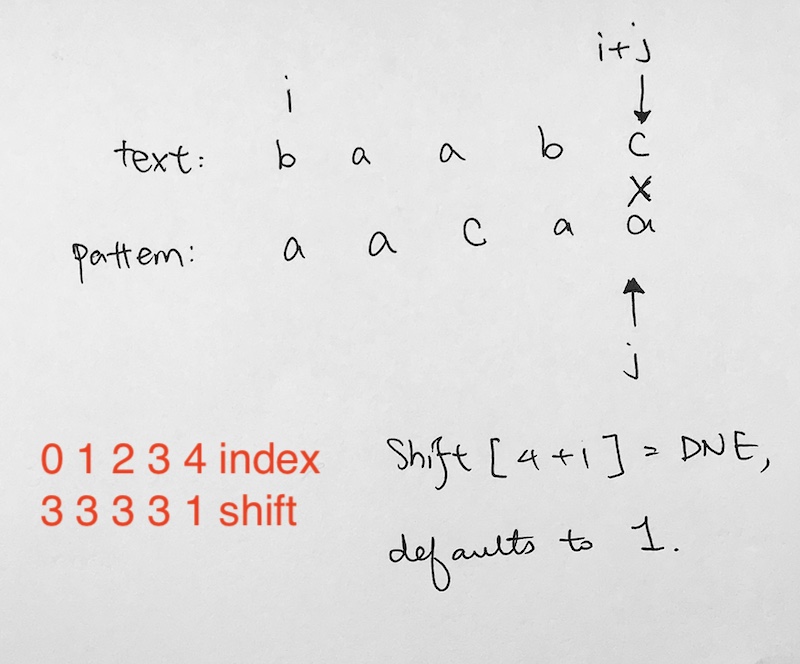 i+j
i
text: b a a b c
x
pattern: a a c a a
j
0 1 2 3 4 index
3 3 3 3 1 shift
Shift [4+1] = DNE,
defaults to 1.